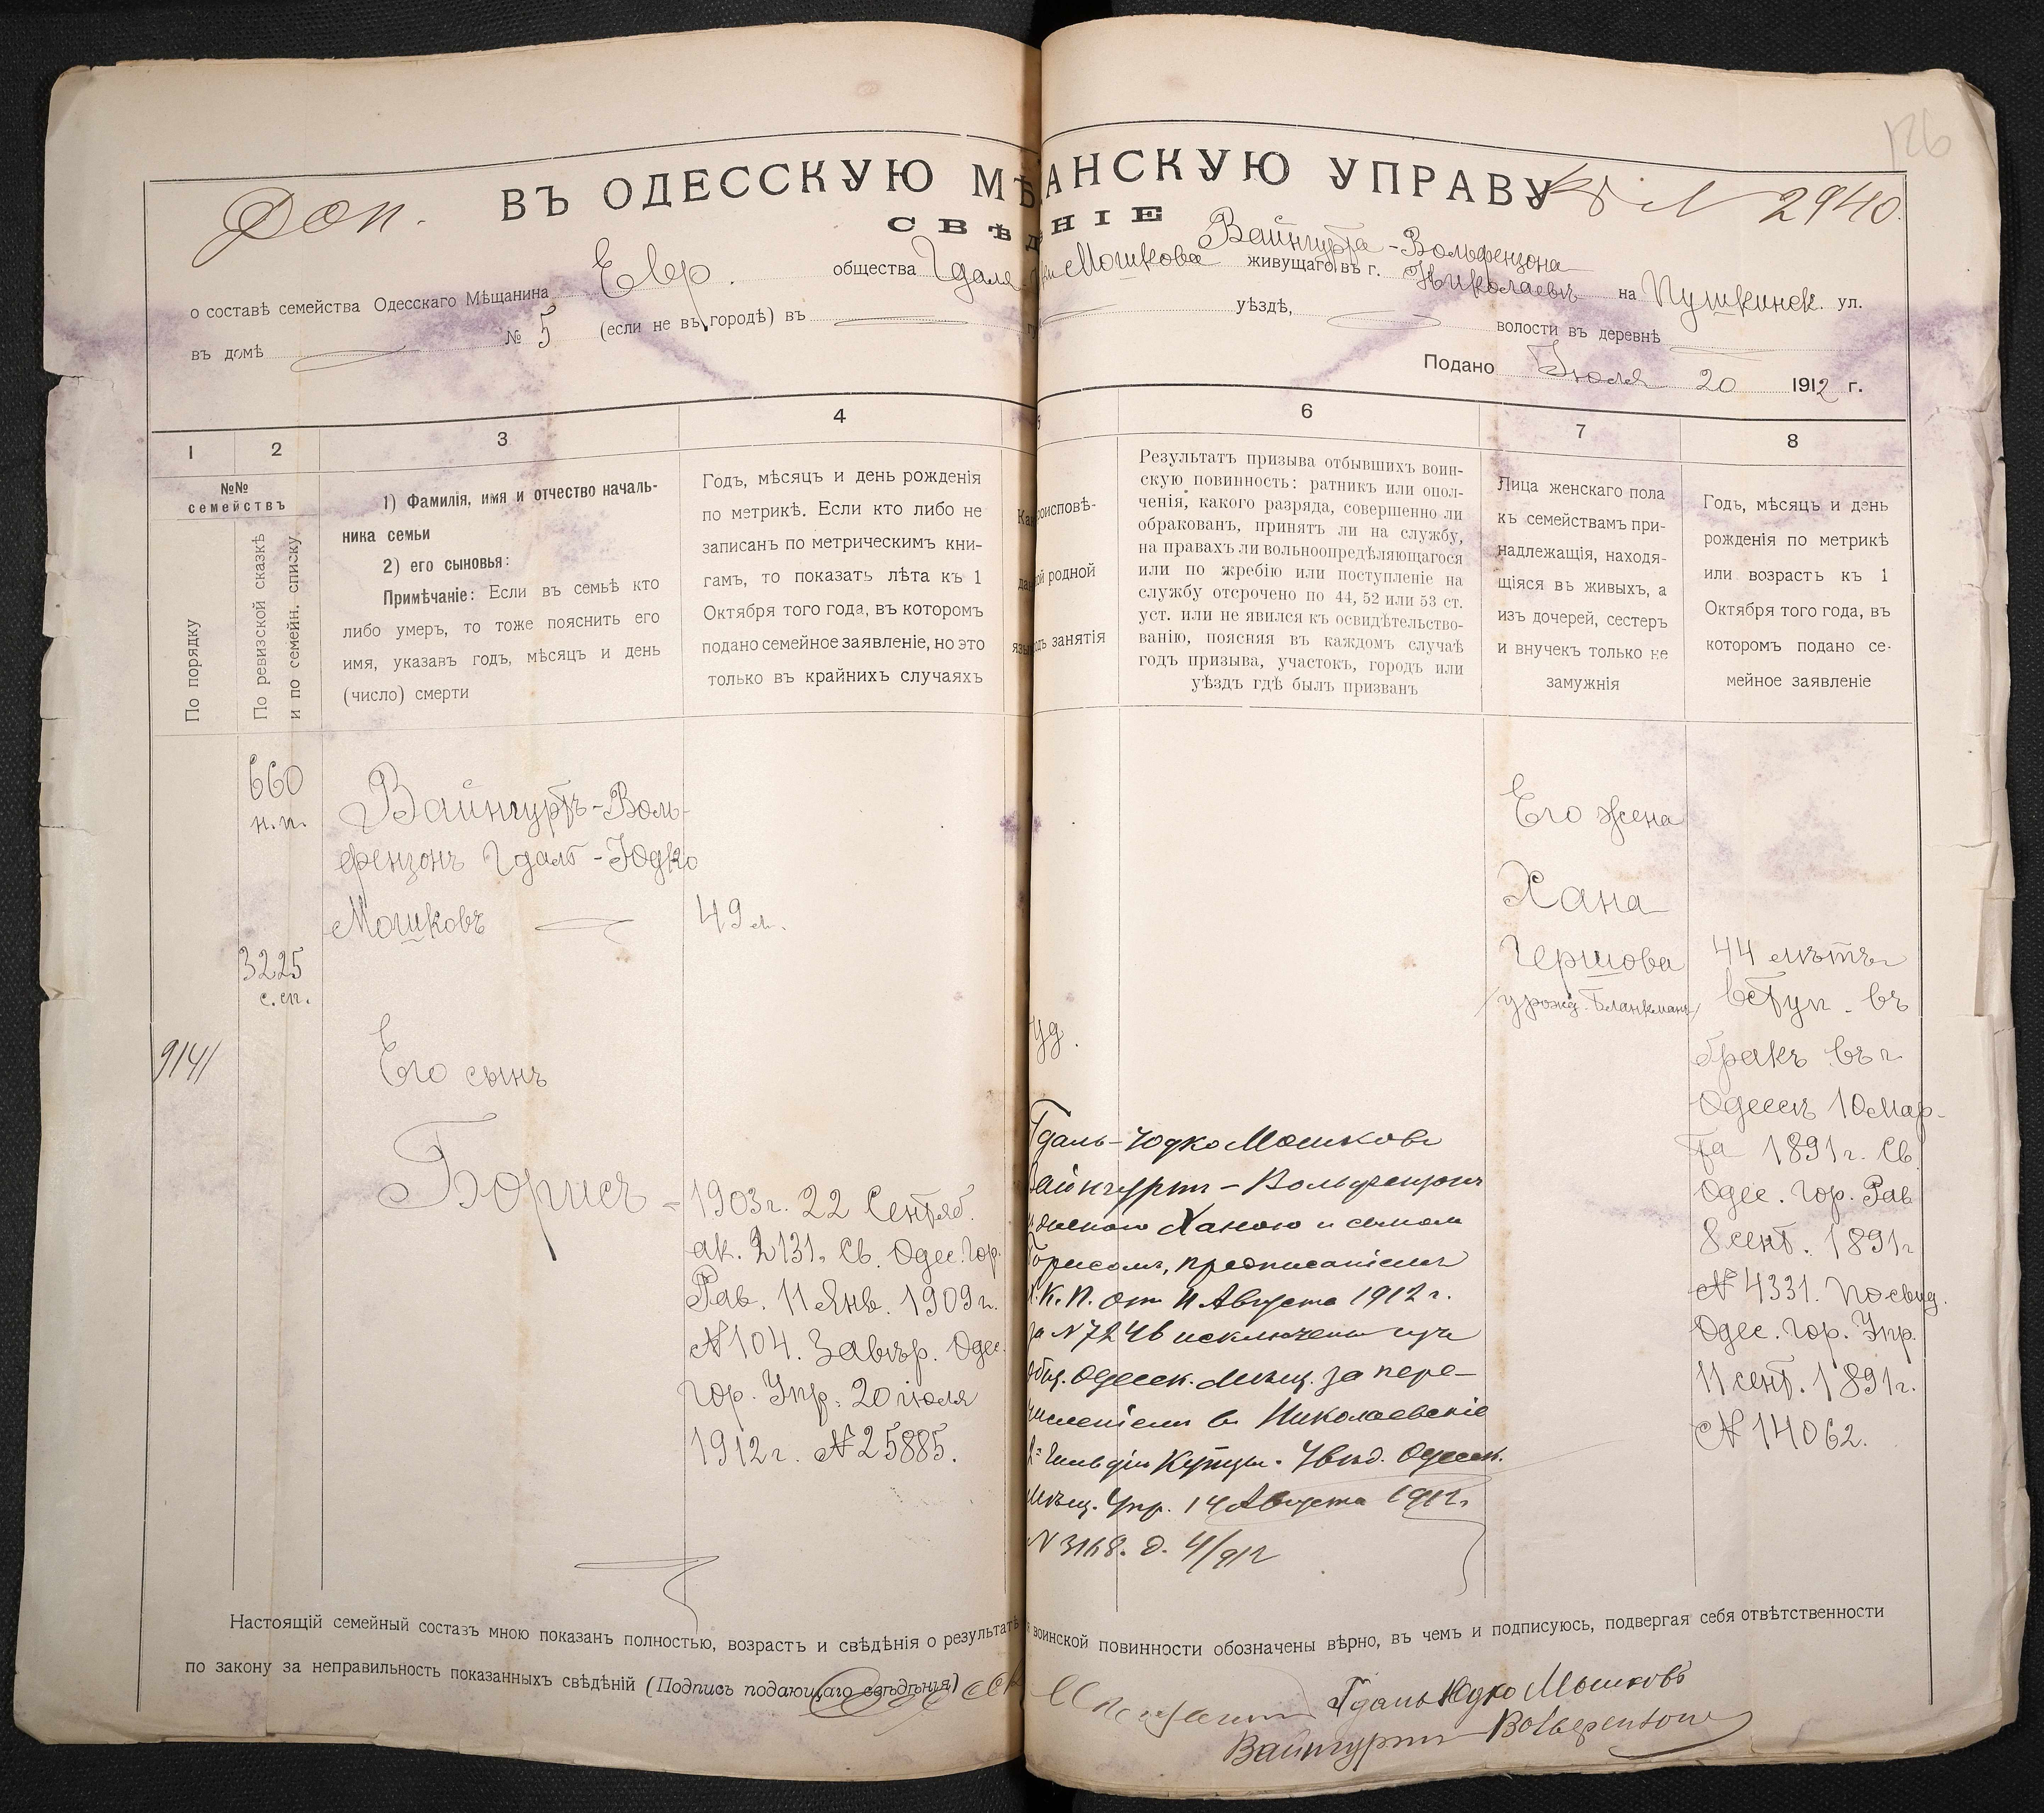 126
Доп.
ВЪ ОДЕССКУЮ МѢ АНСКУЮ УПРАВУ
№ 2940.
СВѢД НІЕ
Вайнгурта-Вольфензона
о составѣ семейства Одесскаго Мѣщанина Евр. общества Гдаля- Мошкова живущаго въ г. Николаевѣ на Пушкинск. ул.
въ домѣ № 5 (если не въ городѣ) въ уѣздѣ, волости въ деревнѣ
Подано Іюля 20 1912 г.
1 2 3 4 5 6 7 8
№№
семействъ
По порядку
По ревизской сказкѣ
и по семейн. списку
1) Фамилія, имя и отчество началь-
ника семьи
2) его сыновья:
Примѣчаніе: Если въ семьѣ кто
либо умеръ, то тоже пояснить его
имя, указавъ годъ, мѣсяцъ и день
(число) смерти
Годъ, мѣсяцъ и день рожденія
по метрикѣ. Если кто либо не
записанъ по метрическимъ кни-
гамъ, то показать лѣта къ 1
Октября того года, въ которомъ
подано семейное заявленіе, но это
только въ крайнихъ случаяхъ
Как роисповѣ-
дан ой родной
язы одъ занятія
Результатъ призыва отбывшихъ воин-
скую повинность: ратникъ или опол-
ченія, какого разряда, совершенно ли
обракованъ, принятъ ли на службу,
на правахъ ли вольноопредѣляющагося
или по жребію или поступленіе на
службу отсрочено по 44, 52 или 53 ст.
уст. или не явился къ освидѣтельство-
ванію, поясняя въ каждомъ случаѣ
годъ призыва, участокъ, городъ или
уѣздъ гдѣ былъ призванъ
Лица женскаго пола
къ семействамъ при-
надлежащія, находя-
щіяся въ живыхъ, а
изъ дочерей, сестеръ
и внучекъ только не
замужнія
Годъ, мѣсяцъ и день
рожденія по метрикѣ
или возрастъ къ 1
Октября того года, въ
которомъ подано се-
мейное заявленіе
660
н.п.
3225
с.сп.
9141
Вайнгуртъ-Воль-
фензонъ Гдаль-Юдко
Мошковъ
49 л.
Его сынъ
Борисъ -
1903 г. 22 Сентяб.
ак. 2131, Св. Одес. Гор.
Рав. 11 Янв. 1909 г.
№ 104. Завѣр. Одес.
Гор. Упр. 20 іюля
1912 г. № 25885.
уд.
Гдаль-Юдко Мошковъ
Вайнгуртъ-Вольфензонъ
женою Ханою и сыномъ
Борисомъ, предписаніемъ
К. П. отъ 11 Августа 1912 г.
за № 7246 исключены изъ
общ. Одесск. Мѣщ. за пере-
численіемъ въ Николаевскіе
2й Гильдіи Купцы. Увѣд. Одесск.
Мѣщ. Упр. 14 Августа 1912.
№ 3168. д. 4/912
Его жена
Хана
Гершова
/урожд. Бланкманъ/
44 лѣтъ
вступ. въ
бракъ въ г.
Одессѣ 10 Мар-
та 1891 г. Св.
Одес. Гор. Рав
8 сент. 1891 г
№ 4331. По свид.
Одес. Гор. Упр.
11 сент. 1891 г.
№ 14062.
Настоящій семейный составъ мною показанъ полностью, возрастъ и свѣдѣнія о результатѣ воинской повинности обозначены вѣрно, въ чемъ и подписуюсь, подвергая себя отвѣтственности
по закону за неправильность показанныхъ свѣдѣній (Подпись подающаго свѣдѣнія)
Гдаль Юдко Мошковъ
Вайнгуртъ-Вольфензонъ